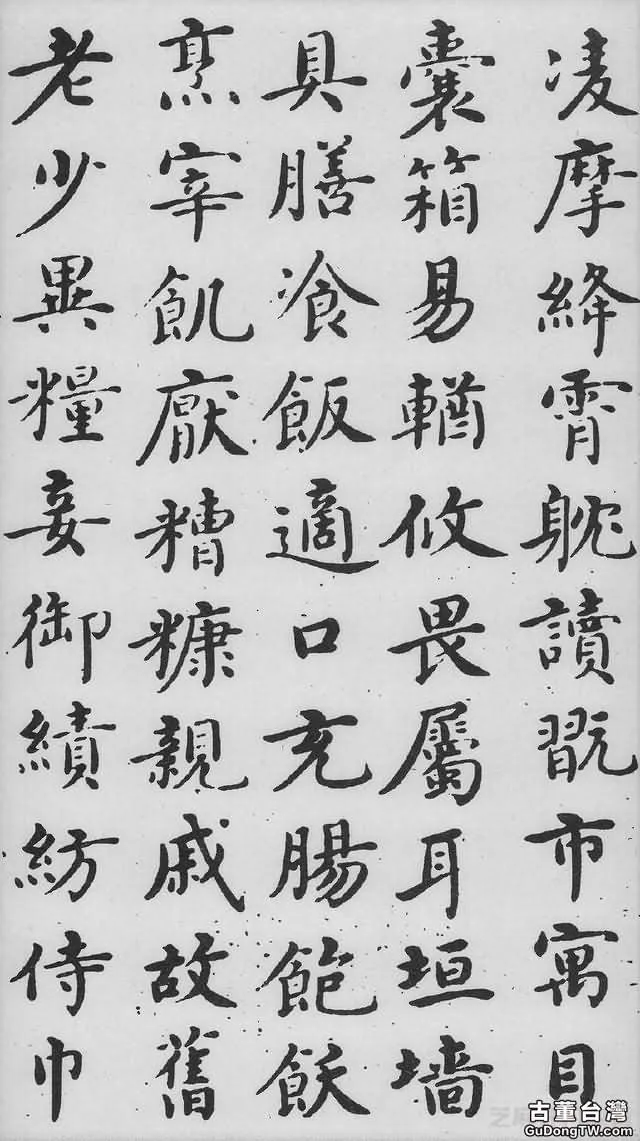 凌摩絳霄躭讀翫市寓目
囊箱易輶攸畏屬耳垣墻
具膳飡飯適口充腸飽飫
烹宰飢厭糟糠親戚故舊
老少異糧妾御績紡侍巾
古董台灣
GuDongTW.com